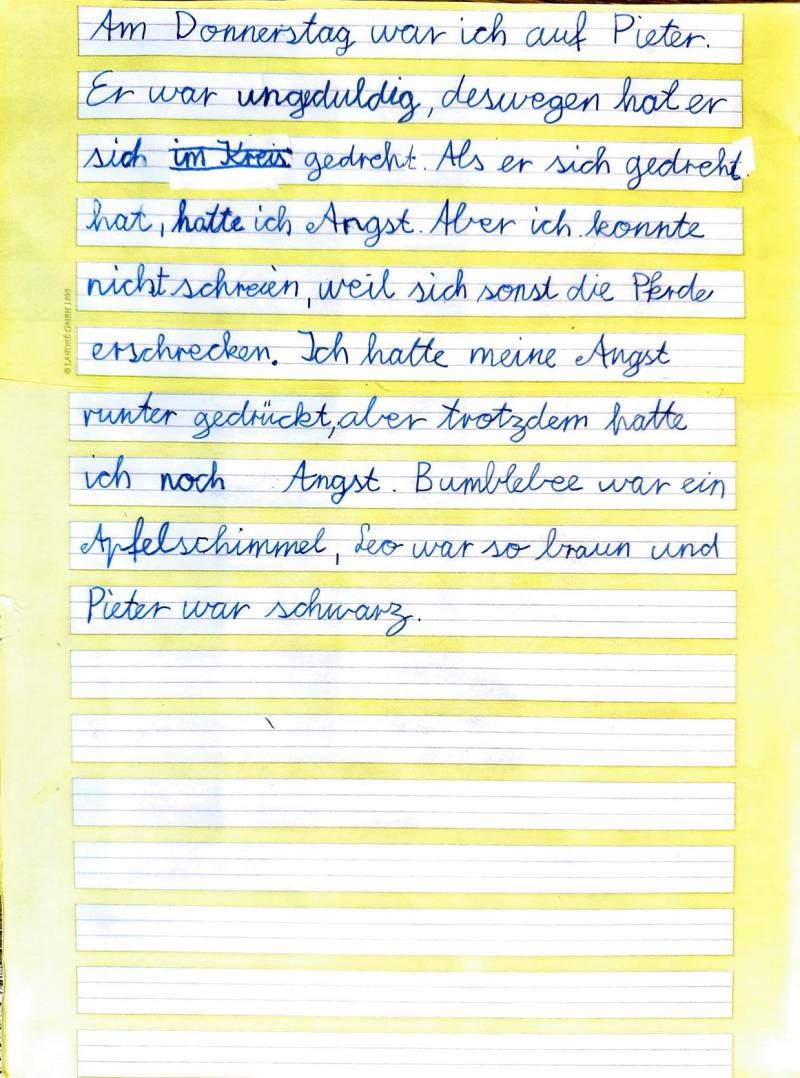 Am Donnerstag war ich auf Pieter.
Er war ungeduldig, deswegen hat er
sich im Kreis gedreht. Als er sich gedreht
hat, hatte ich Angst. Aber ich konnte
nicht schreien, weil sich sonst die Pferde
erschrecken. Ich hatte meine Angst
runter gedrückt, aber trotzdem hatte
ich noch Angst. Bumblebee war ein
Apfelschimmel, Leo war so braun und
Pieter war schwarz.
© LANDRÉ GMBH 1995